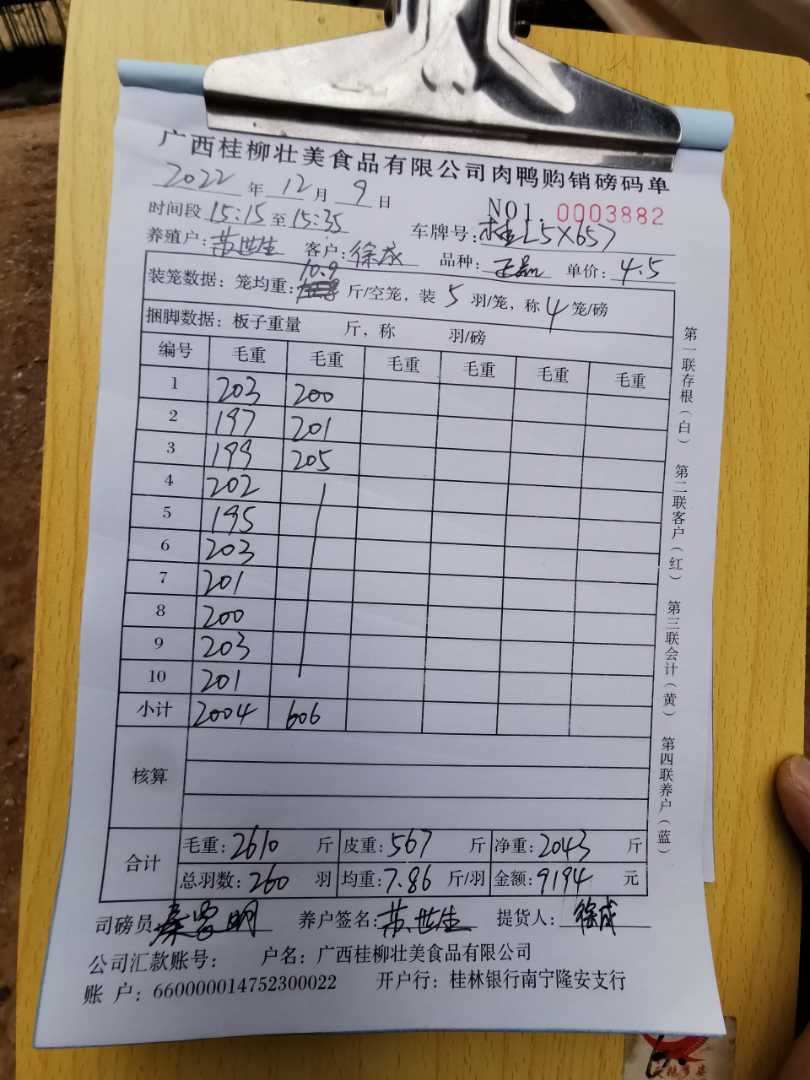 广西桂柳壮美食品有限公司肉鸭购销磅码单
2022 年 12 月 9 日
NO1. 0003882
时间段 15:15 至 15:35 车牌号: 桂L5X657
养殖户: 苏世生 客户: 徐成 品种: 单价: 4.5
装笼数据: 笼均重: 10.9 斤/空笼, 装 5 羽/笼, 称 4 笼/磅
捆脚数据: 板子重量 斤, 称 羽/磅
编号 毛重 毛重 毛重 毛重 毛重 毛重
1 203 200
2 197 201
3 199 205
4 202
5 195
6 203
7 201
8 200
9 203
10 201
小计 2004 606
核算
合计 毛重: 2610 斤 皮重: 567 斤 净重: 2043 斤
总羽数: 260 羽 均重: 7.86 斤/羽 金额: 9194 元
司磅员 养户签名: 苏世生 提货人: 徐成
公司汇款账号: 户名: 广西桂柳壮美食品有限公司
账 户: 660000014752300022 开户行: 桂林银行南宁隆安支行
第一联存根(白) 第二联客户(红) 第三联会计(黄) 第四联养户(蓝)